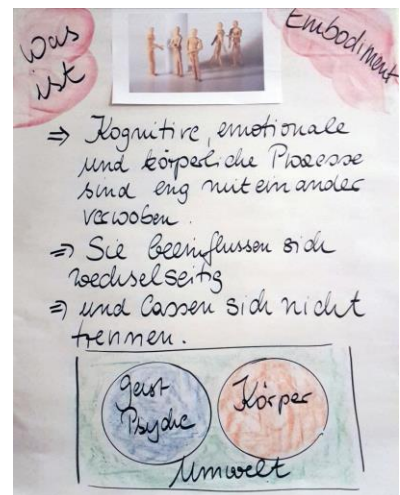 Was
ist
Embodiment
⇒ Kognitive, emotionale
und körperliche Prozesse
sind eng miteinander
verwoben.
⇒ Sie beeinflussen sich
wechselseitig
⇒ und lassen sich nicht
trennen.
Geist
Psyche
Körper
Umwelt